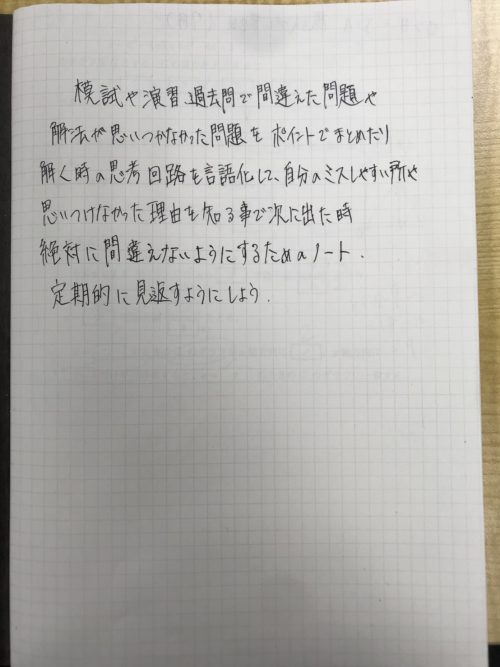 模試や演習、過去問で間違えた問題や
解法が思いつかなかった問題をポイントでまとめたり
解く時の思考回路を言語化して、自分のミスしやすい所や
思いつけなかった理由を知る事で次に出た時
絶対に間違えないようにするためのノート.
定期的に見返すようにしよう.